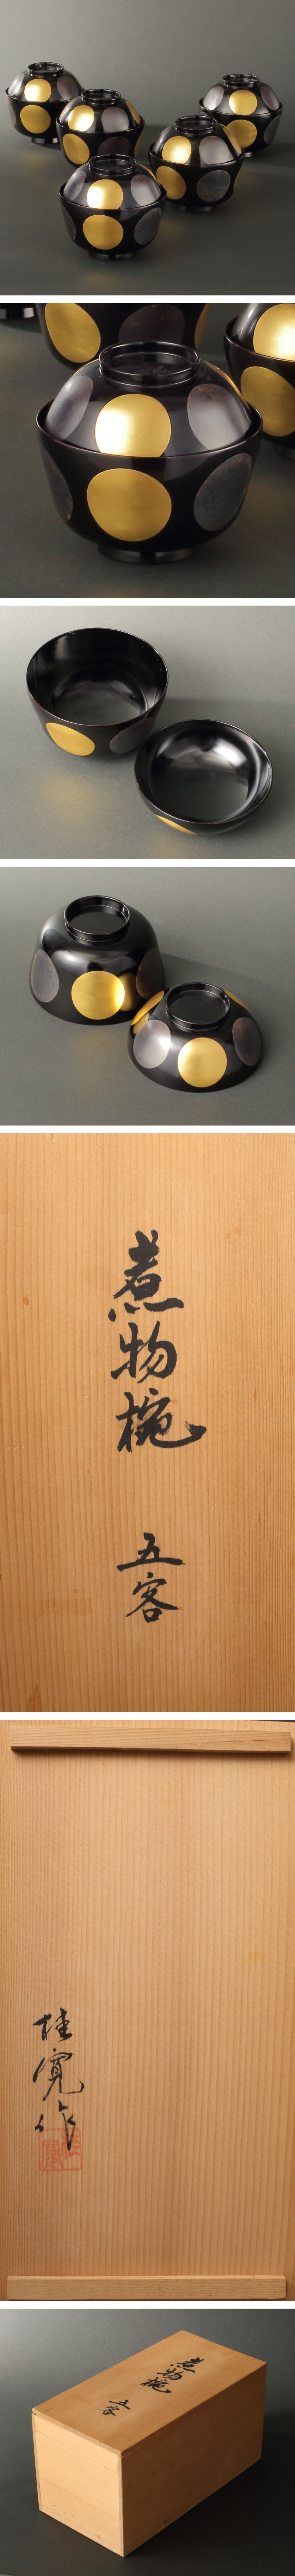 煮物椀
五客
桂寛作
煮物椀
五客